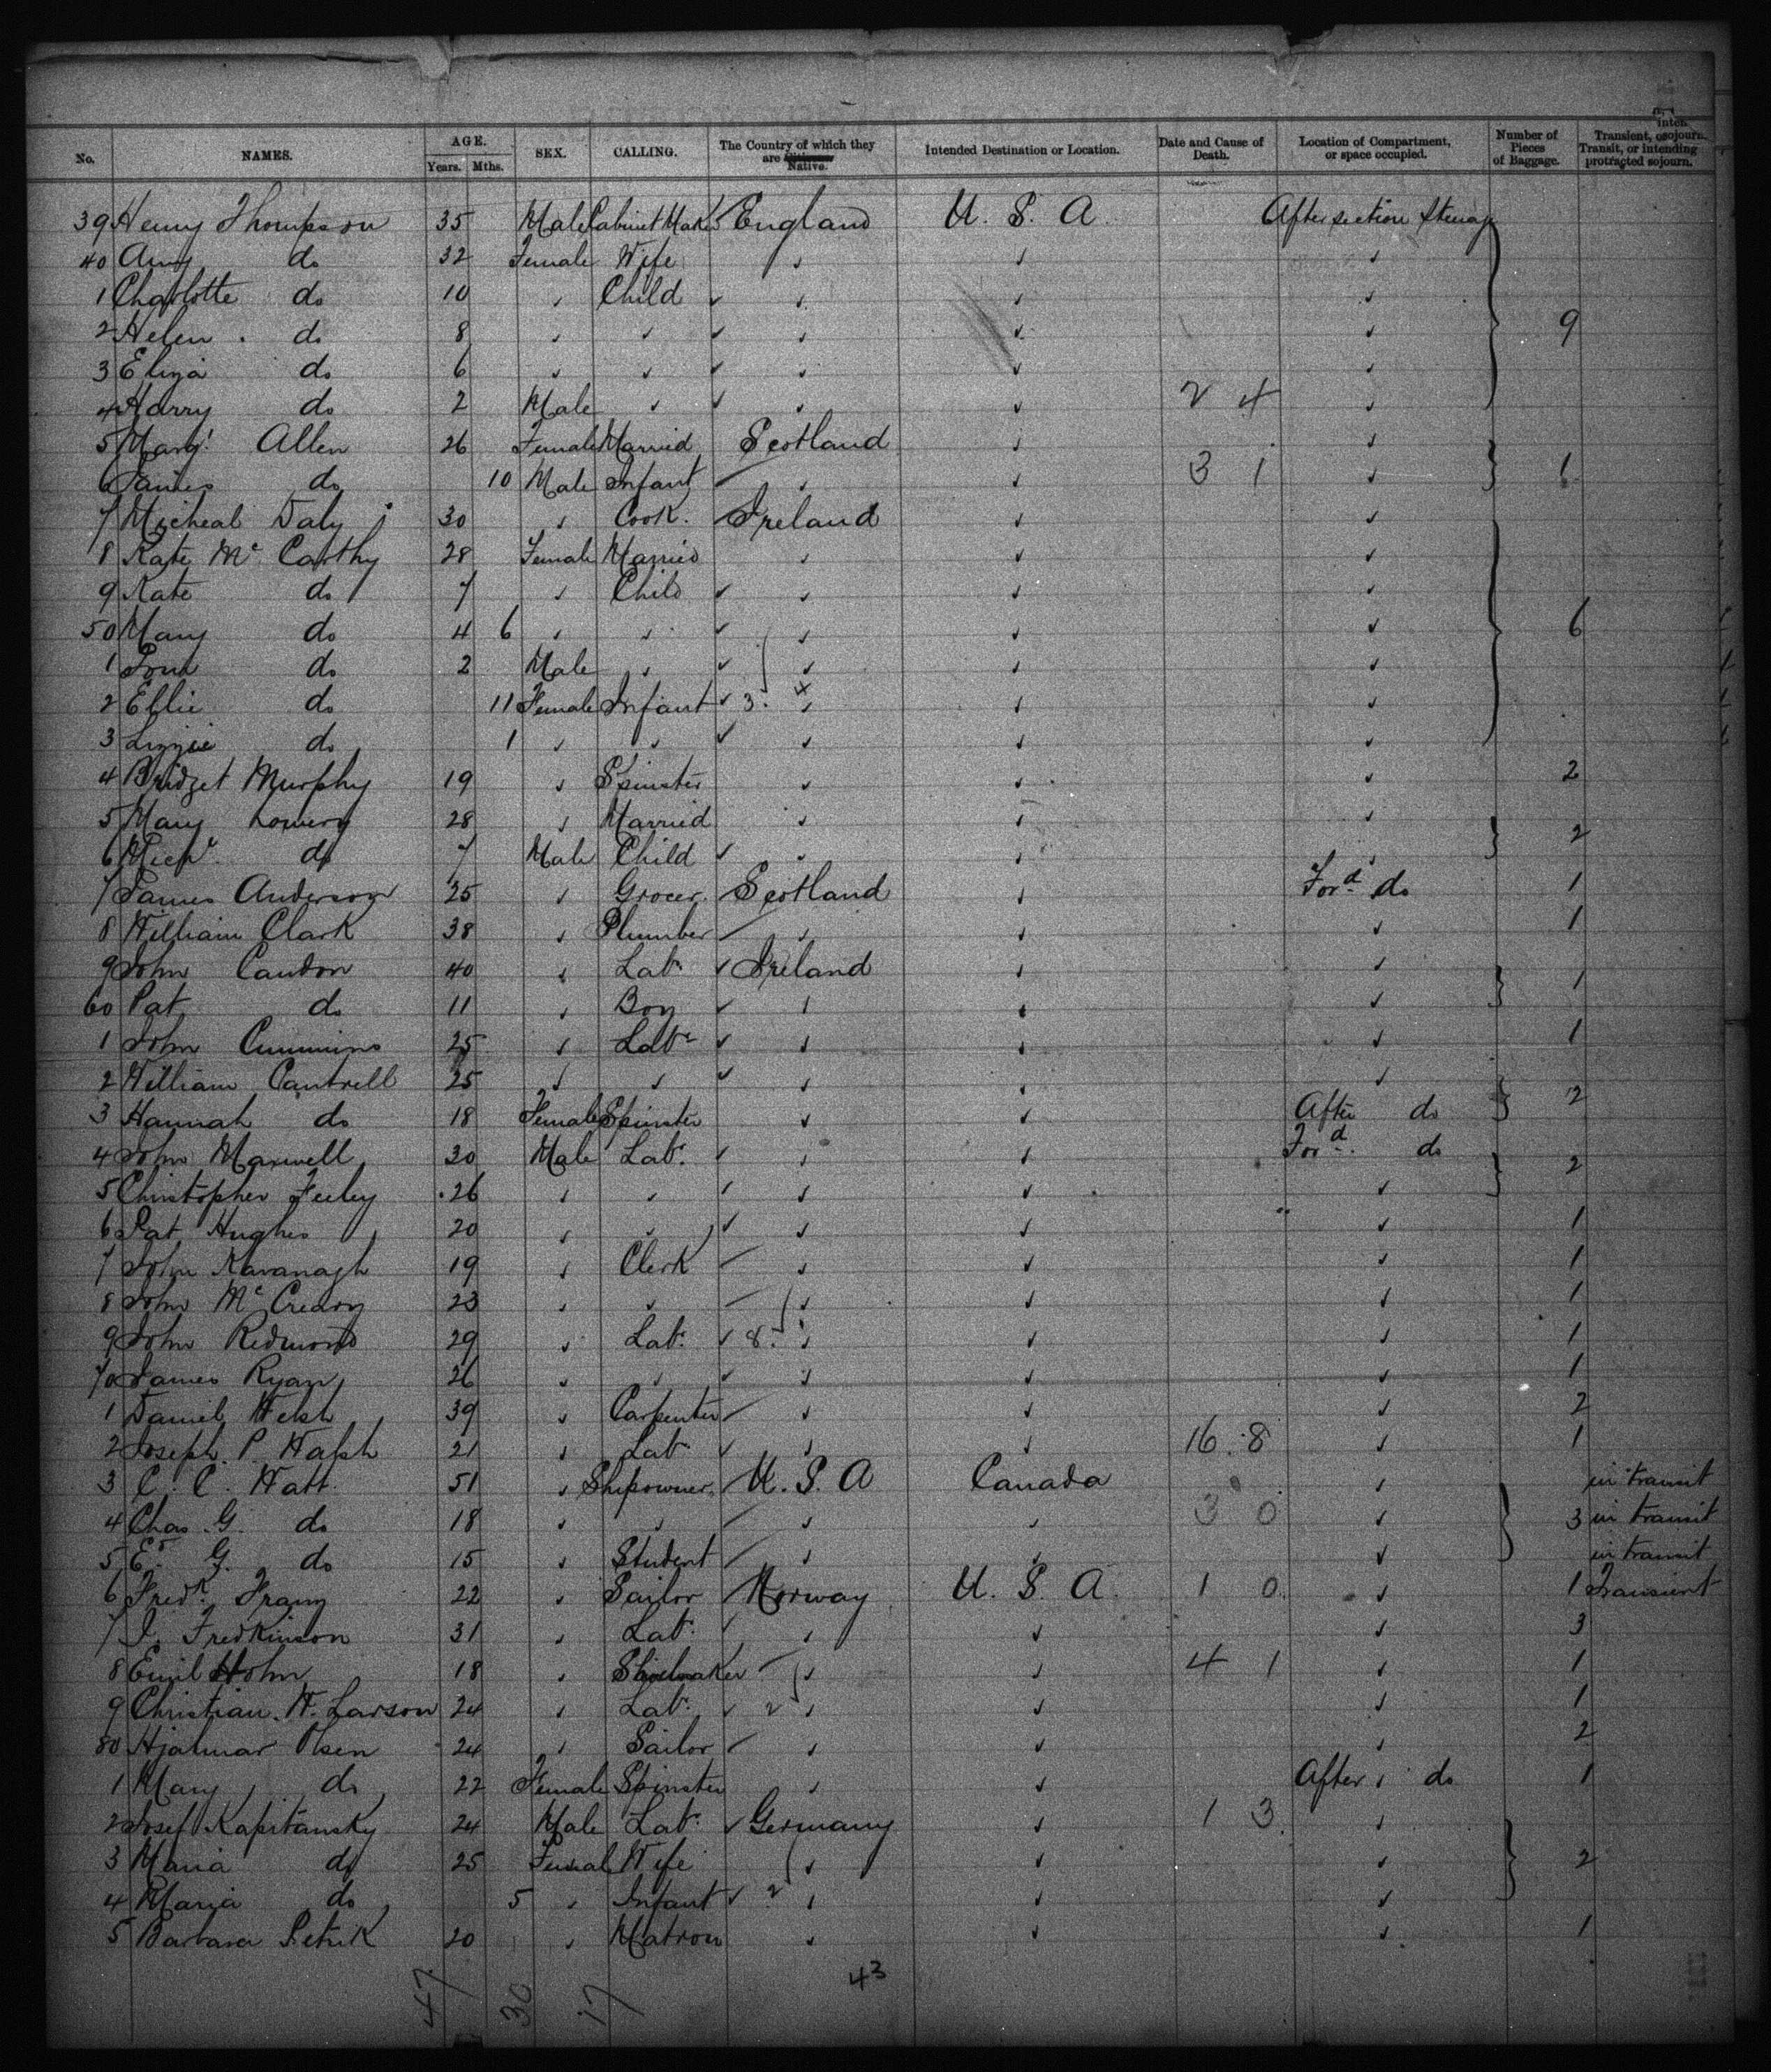 No. NAMES. AGE. Years. Mths. SEX. CALLING. The Country of which they are Native. Intended Destination or Location. Date and Cause of Death. Location of Compartment, or space occupied. Number of Pieces of Baggage. Transient, or sojourn. Transit, or intending protracted sojourn.
39 Henry Thompson 35 Male Cabinet Maker England U. S. A. After section Steerage
40 Amy do 32 Female Wife ✓ ✓ ✓
1 Charlotte do 10 ✓ Child ✓ ✓ ✓ ✓
2 Helen do 8 ✓ ✓ ✓ ✓ ✓ ✓ 9
3 Eliza do 6 ✓ ✓ ✓ ✓ ✓ ✓
4 Harry do 2 Male ✓ ✓ ✓ ✓ 2 4 ✓
5 Margt Allen 26 Female Married Scotland ✓ ✓
6 James do 10 Male Infant ✓ ✓ 3 1 ✓ 1
7 Micheal Daly 30 ✓ Cook. Ireland ✓ ✓
8 Kate Mc Carthy 28 Female Married ✓ ✓ ✓
9 Kate do 7 ✓ Child ✓ ✓ ✓ ✓
50 Mary do 4 6 ✓ ✓ ✓ ✓ ✓ ✓ 6
1 John do 2 Male ✓ ✓ ✓ ✓ ✓
2 Ellie do 11 Female Infant ✓ 3. 4 ✓ ✓ ✓
3 Lizzie do 1 ✓ ✓ ✓ ✓ ✓ ✓
4 Bridget Murphy 19 ✓ Spinster ✓ ✓ ✓ 2
5 Mary Lowery 28 ✓ Married ✓ ✓ ✓
6 Michl do 7 Male Child ✓ ✓ ✓ ✓ 2
7 James Anderson 25 ✓ Grocer. Scotland ✓ Ford do 1
8 William Clark 38 ✓ Plumber ✓ ✓ ✓ 1
9 John Candon 40 ✓ Labr ✓ Ireland ✓ ✓
60 Pat do 11 ✓ Boy ✓ ✓ ✓ ✓ 1
1 John Cummins 25 ✓ Labr ✓ ✓ ✓ ✓ 1
2 William Cantrell 25 ✓ ✓ ✓ ✓ ✓ ✓
3 Hannah do 18 Female Spinster ✓ ✓ After do 2
4 John Maxwell 30 Male Labr ✓ ✓ ✓ Ford do
5 Christopher Feeley 26 ✓ ✓ ✓ ✓ ✓ ✓ 2
6 Pat Hughes 20 ✓ ✓ ✓ ✓ ✓ ✓ 1
7 John Kavanagh 19 ✓ Clerk ✓ ✓ ✓ 1
8 John Mc Creary 23 ✓ ✓ ✓ ✓ ✓ 1
9 John Redmond 29 ✓ Labr ✓ 8. ✓ ✓ ✓ 1
70 James Ryan 26 ✓ ✓ ✓ ✓ ✓ ✓ 1
1 Daniel Welsh 39 ✓ Carpenter ✓ ✓ ✓ 2
2 Joseph. P. Walsh 21 ✓ Labr ✓ ✓ ✓ 16 8 ✓ 1
3 C. C. Watt 51 ✓ Shipowner. U. S. A Canada ✓ in transit
4 Chas. G. do 18 ✓ ✓ ✓ ✓ 3 0 ✓ 3 in transit
5 G. do 15 ✓ Student ✓ ✓ ✓ in transit
6 Fredk 22 ✓ Sailor Norway U. S. A. 1 0 ✓ 1 Transient
7 Fredkinson 31 ✓ Labr ✓ ✓ ✓ ✓ 3
8 Emil Hohn 18 ✓ ✓ ✓ 4 1 ✓ 1
9 Christian. W. Larson 24 ✓ Labr ✓ 2 ✓ ✓ ✓ 1
80 Hjalmar Olsen 24 ✓ Sailor ✓ ✓ ✓ 2
1 Mary do 22 Female Spinster ✓ ✓ After do 1
2 Josef Kapitansky 24 Male Labr ✓ Germany ✓ 1 3 ✓
3 Maria do 25 Female Wife ✓ ✓ ✓ 2
4 Maria do 5 ✓ Infant ✓ 2 ✓ ✓ ✓
5 Barbara Petrik 20 ✓ Matron ✓ ✓ ✓ 1
47 30 17 43